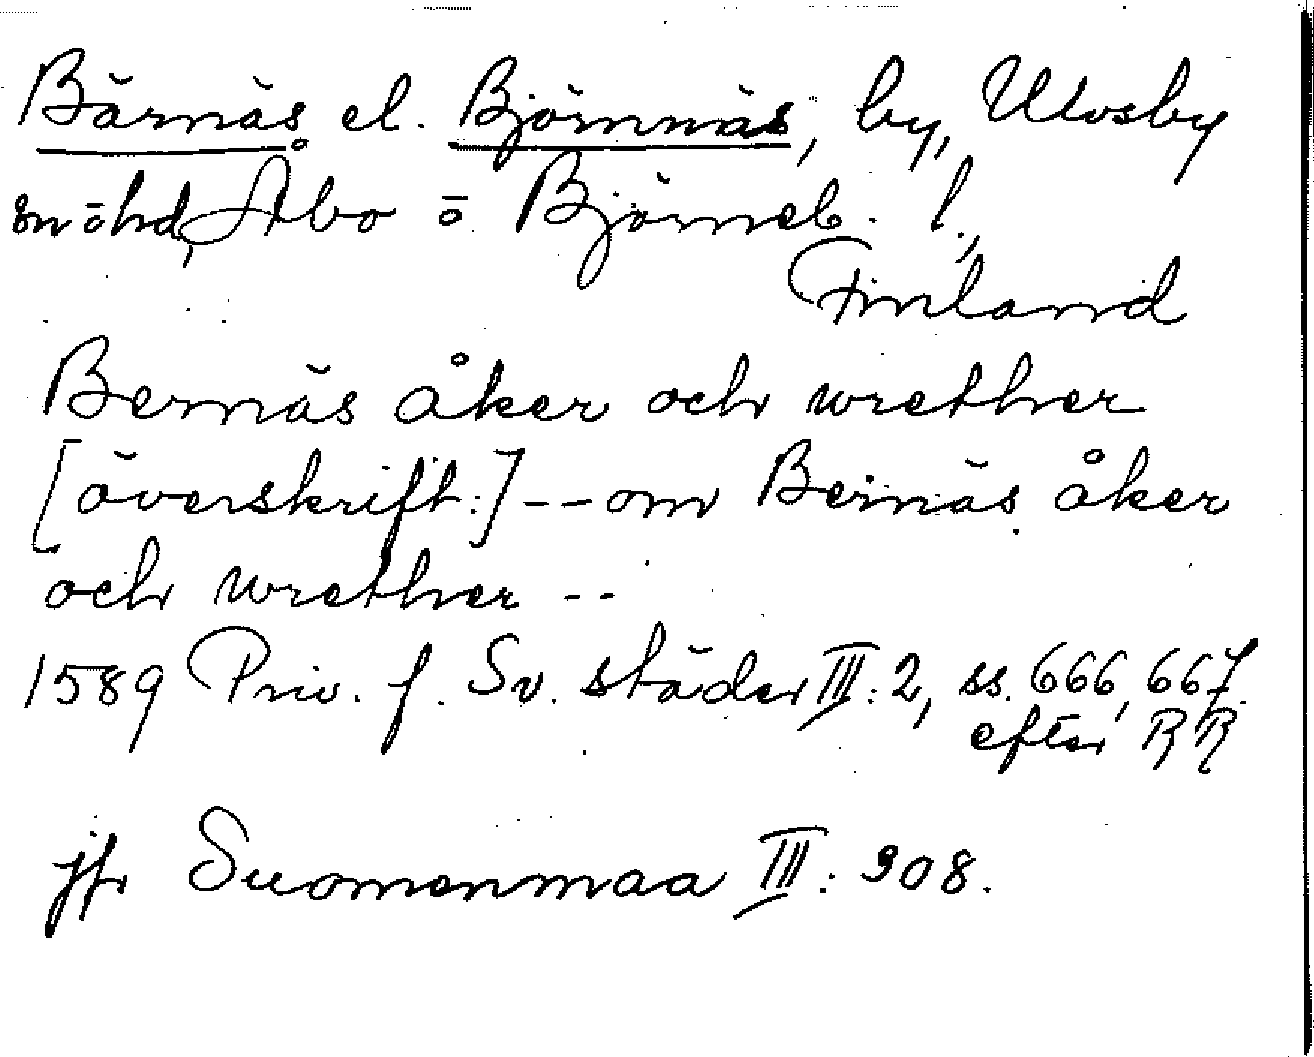 Bärnäs el. Björnnäs, by, Ulvsby
sn o hd, Åbo o Björneb. l.,
Finland
Bernäs åker och wrether
[överskrift:] -- om Bernäs åker
och wrether --
1589 Priv. f. Sv. städer III:2, ss. 666, 667.
efter RR
jfr Suomenmaa III: 308.